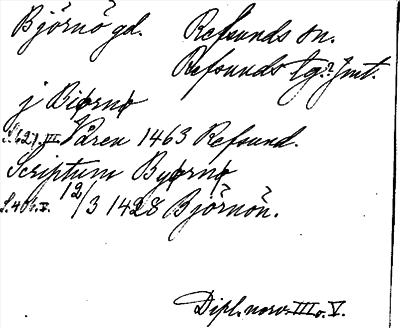 Björnö gd. Refsunds sn.
Refsunds tg. Jmt.
j Biørnø
S. 621. III Våren 1463 Refsund.
Scriptum Byørnø
S. 401. V. 12/3 1428 Björnön.
Dipl. norv. III o. V.